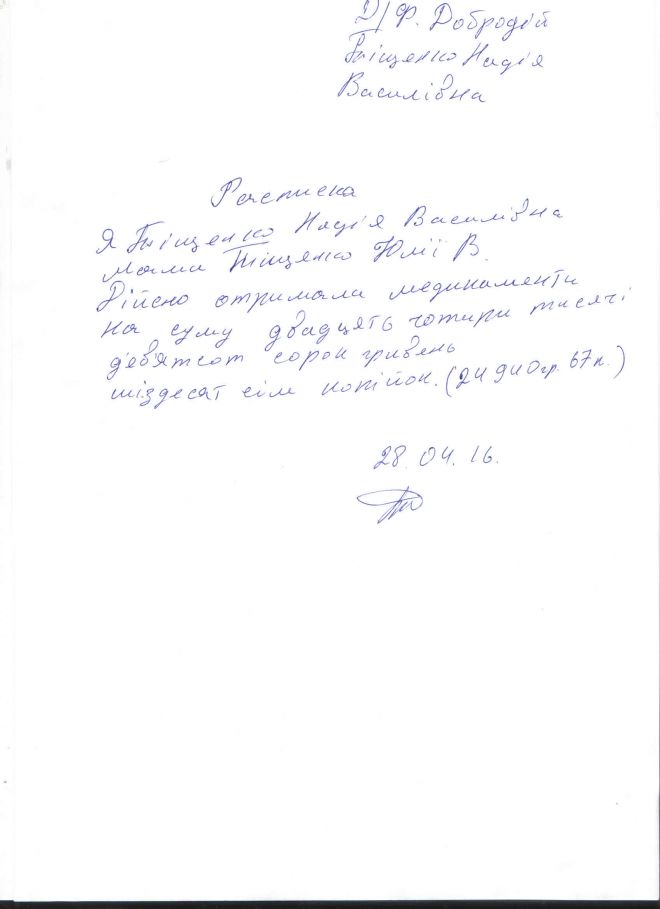 Д/Ф. Добродій
Тніщенко Надія
Василівна
Расписка
Я Тніщенко Надія Василівна
мама Тніщенко Юлії В.
Дійсно отримала медикаменти
на суму двадцять чотири тисячі
дев'ятсот сорок гривень
шіздесят сім копійок. (24 940гр. 67к.)
28.04.16.